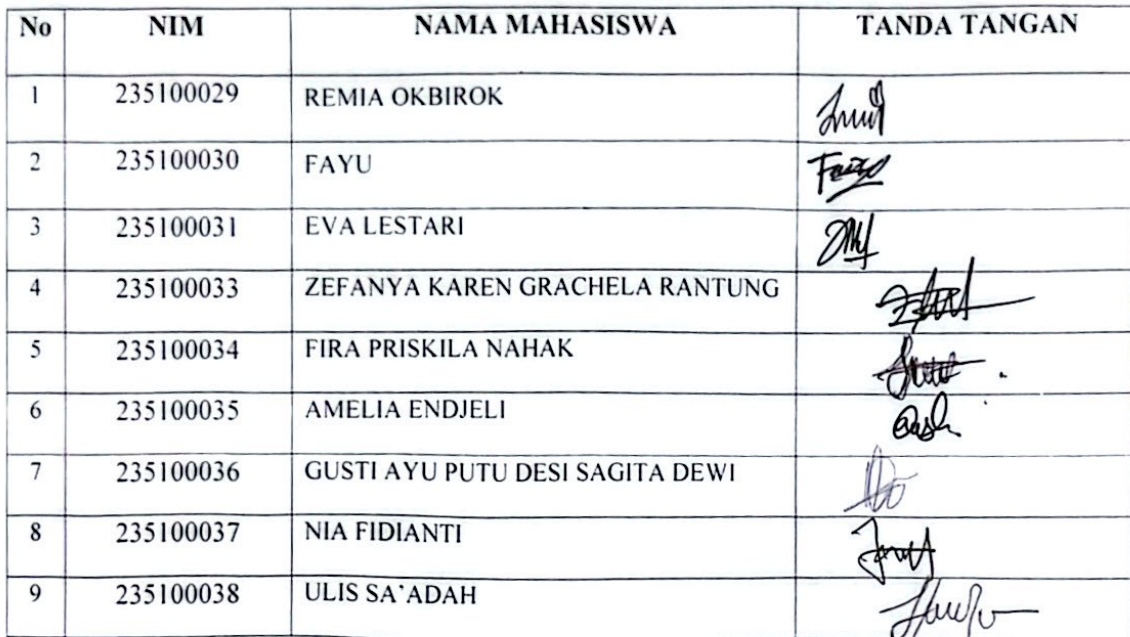 No NIM NAMA MAHASISWA TANDA TANGAN
1 235100029 REMIA OKBIROK
2 235100030 FAYU
3 235100031 EVA LESTARI
4 235100033 ZEFANYA KAREN GRACHELA RANTUNG
5 235100034 FIRA PRISKILA NAHAK
6 235100035 AMELIA ENDJELI
7 235100036 GUSTI AYU PUTU DESI SAGITA DEWI
8 235100037 NIA FIDIANTI
9 235100038 ULIS SA'ADAH